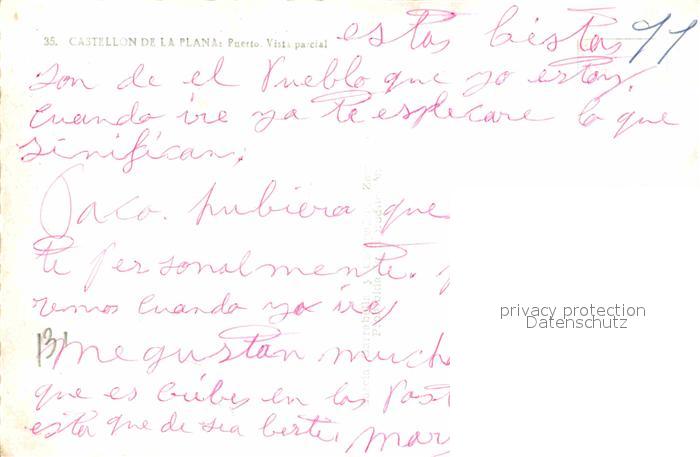 35. CASTELLON DE LA PLANA: Puerto. Vista parcial
estas bistas 99
son de el Pueblo que yo estoy.
Cuando ire ya te esplecare lo que
sinifican,
Paco. hubiera que
te personalmente.
remos cuando yo ire,
131 me gustan mucho
que escribes en las Post
esta que desea berte, mary
privacy protection
Datenschutz